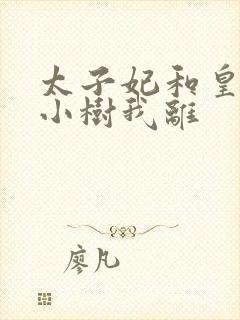 太子妃和皇
小樹我離
廖凡